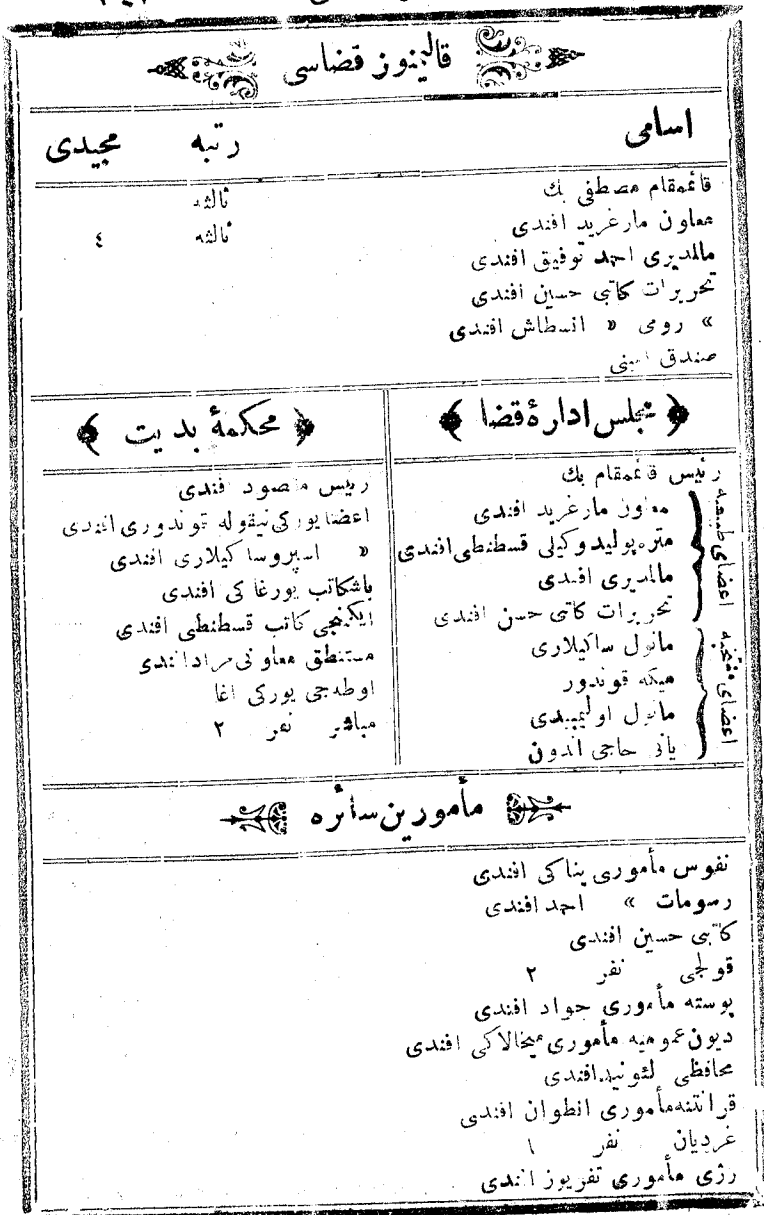 قالینوز قضاسی
اسامی رتبه مجیدی
قائممقام مصطفی بك ثالثه
معاون مارغرید افندی ثالثه ٤
مالمدیری احمد توفیق افندی
تحریرات کاتبی حسین افندی
» رومی » انسطاش افندی
صندق امینی
مجلس ادارۀ قضا
رئیس قائممقام بك
اعضای طبیعیه
معاون مارغرید افندی
متره پولید وکیلی قسطنطی افندی
مالمدیری افندی
تحریرات کاتبی حسن افندی
اعضای منتخبه
مانول ساکیلاری
میکه قوندور
مانول اولیمپیدی
یانی حاجی اندون
محکمۀ بدایت
رئیس مقصود افندی
اعضا یورکی نیقوله توندوری افندی
» اسپرو ساکیلاری افندی
باشکاتب یورغاکی افندی
ایکنجی کاتب قسطنطی افندی
مستنطق معاونی مراد افندی
اوطه جی یورکی اغا
مباشر نفر ٢
مأمورین سائره
نفوس مأموری پناکی افندی
رسومات » احمد افندی
کاتبی حسین افندی
قولجی نفر ٢
پوسته مأموری جواد افندی
دیون عمومیه مأموری میخالاکی افندی
محافظی لئونید افندی
قرانتنه مأموری انطوان افندی
غردیان نفر ١
رژی مأموری افندی